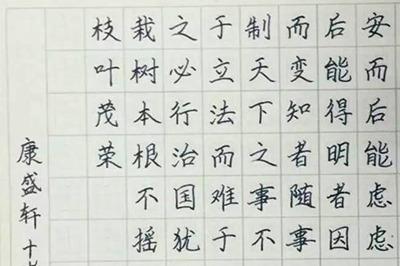 安而后能虑虑
后能得明者因
而变知者随事
制天下之事不
于立法而难于
之必行治国犹
栽树本根不摇
枝叶茂荣
康盛轩十